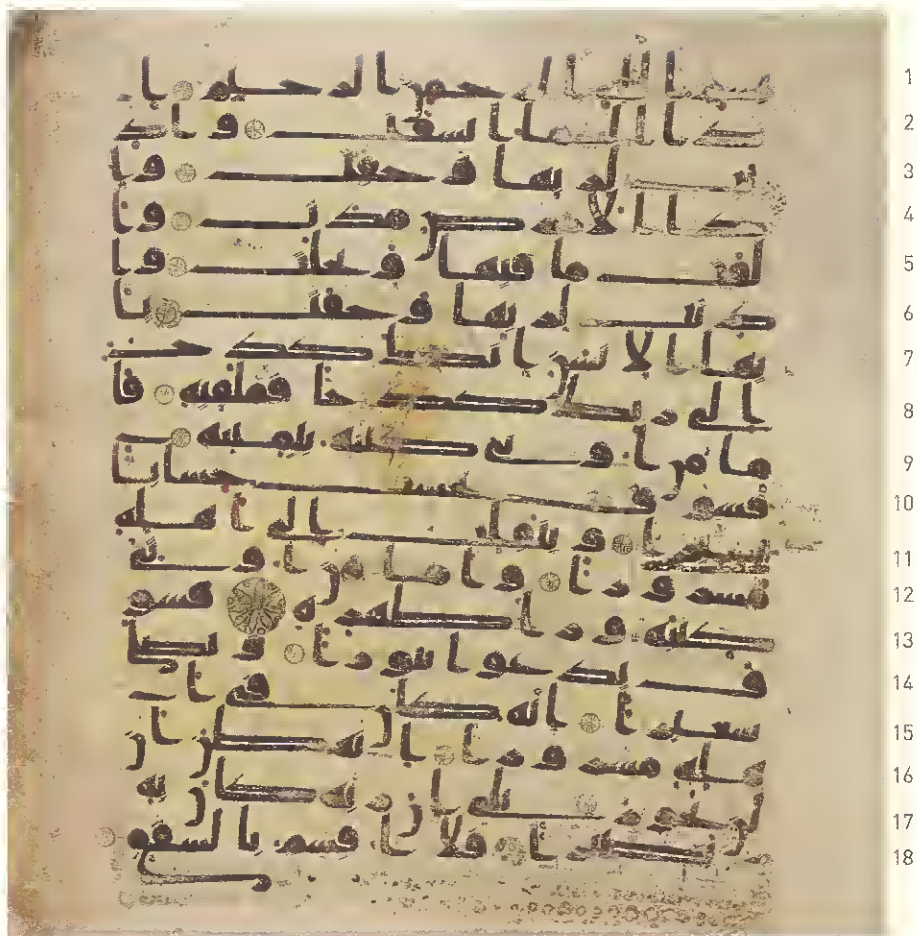 1 بسم الله الرحمن الرحيم ا
2 ذا السما انشقت واذ
3 نت لربها وحقت وا
4 ذا الارض مدت وا
5 لقت ما فيها وتخلت وا
6 ذنت لربها وحقت يا
7 يها الانسن انك كدح
8 الى ربك كدحا فملقيه فا
9 ما من اوتي كتبه بيمينه
10 فسوف يحسب حسابا
11 يسيرا وينقلب الى اهله
12 مسرورا واما من اوتي
13 كتبه ورا ظهره فسو
14 ف يدعوا ثبورا ويصلى
15 سعيرا انه كان في ا
16 هله مسرورا انه ظن ان
17 لن يحور بلى ان ربه كان به
18 بصيرا فلا اقسم بالشفق